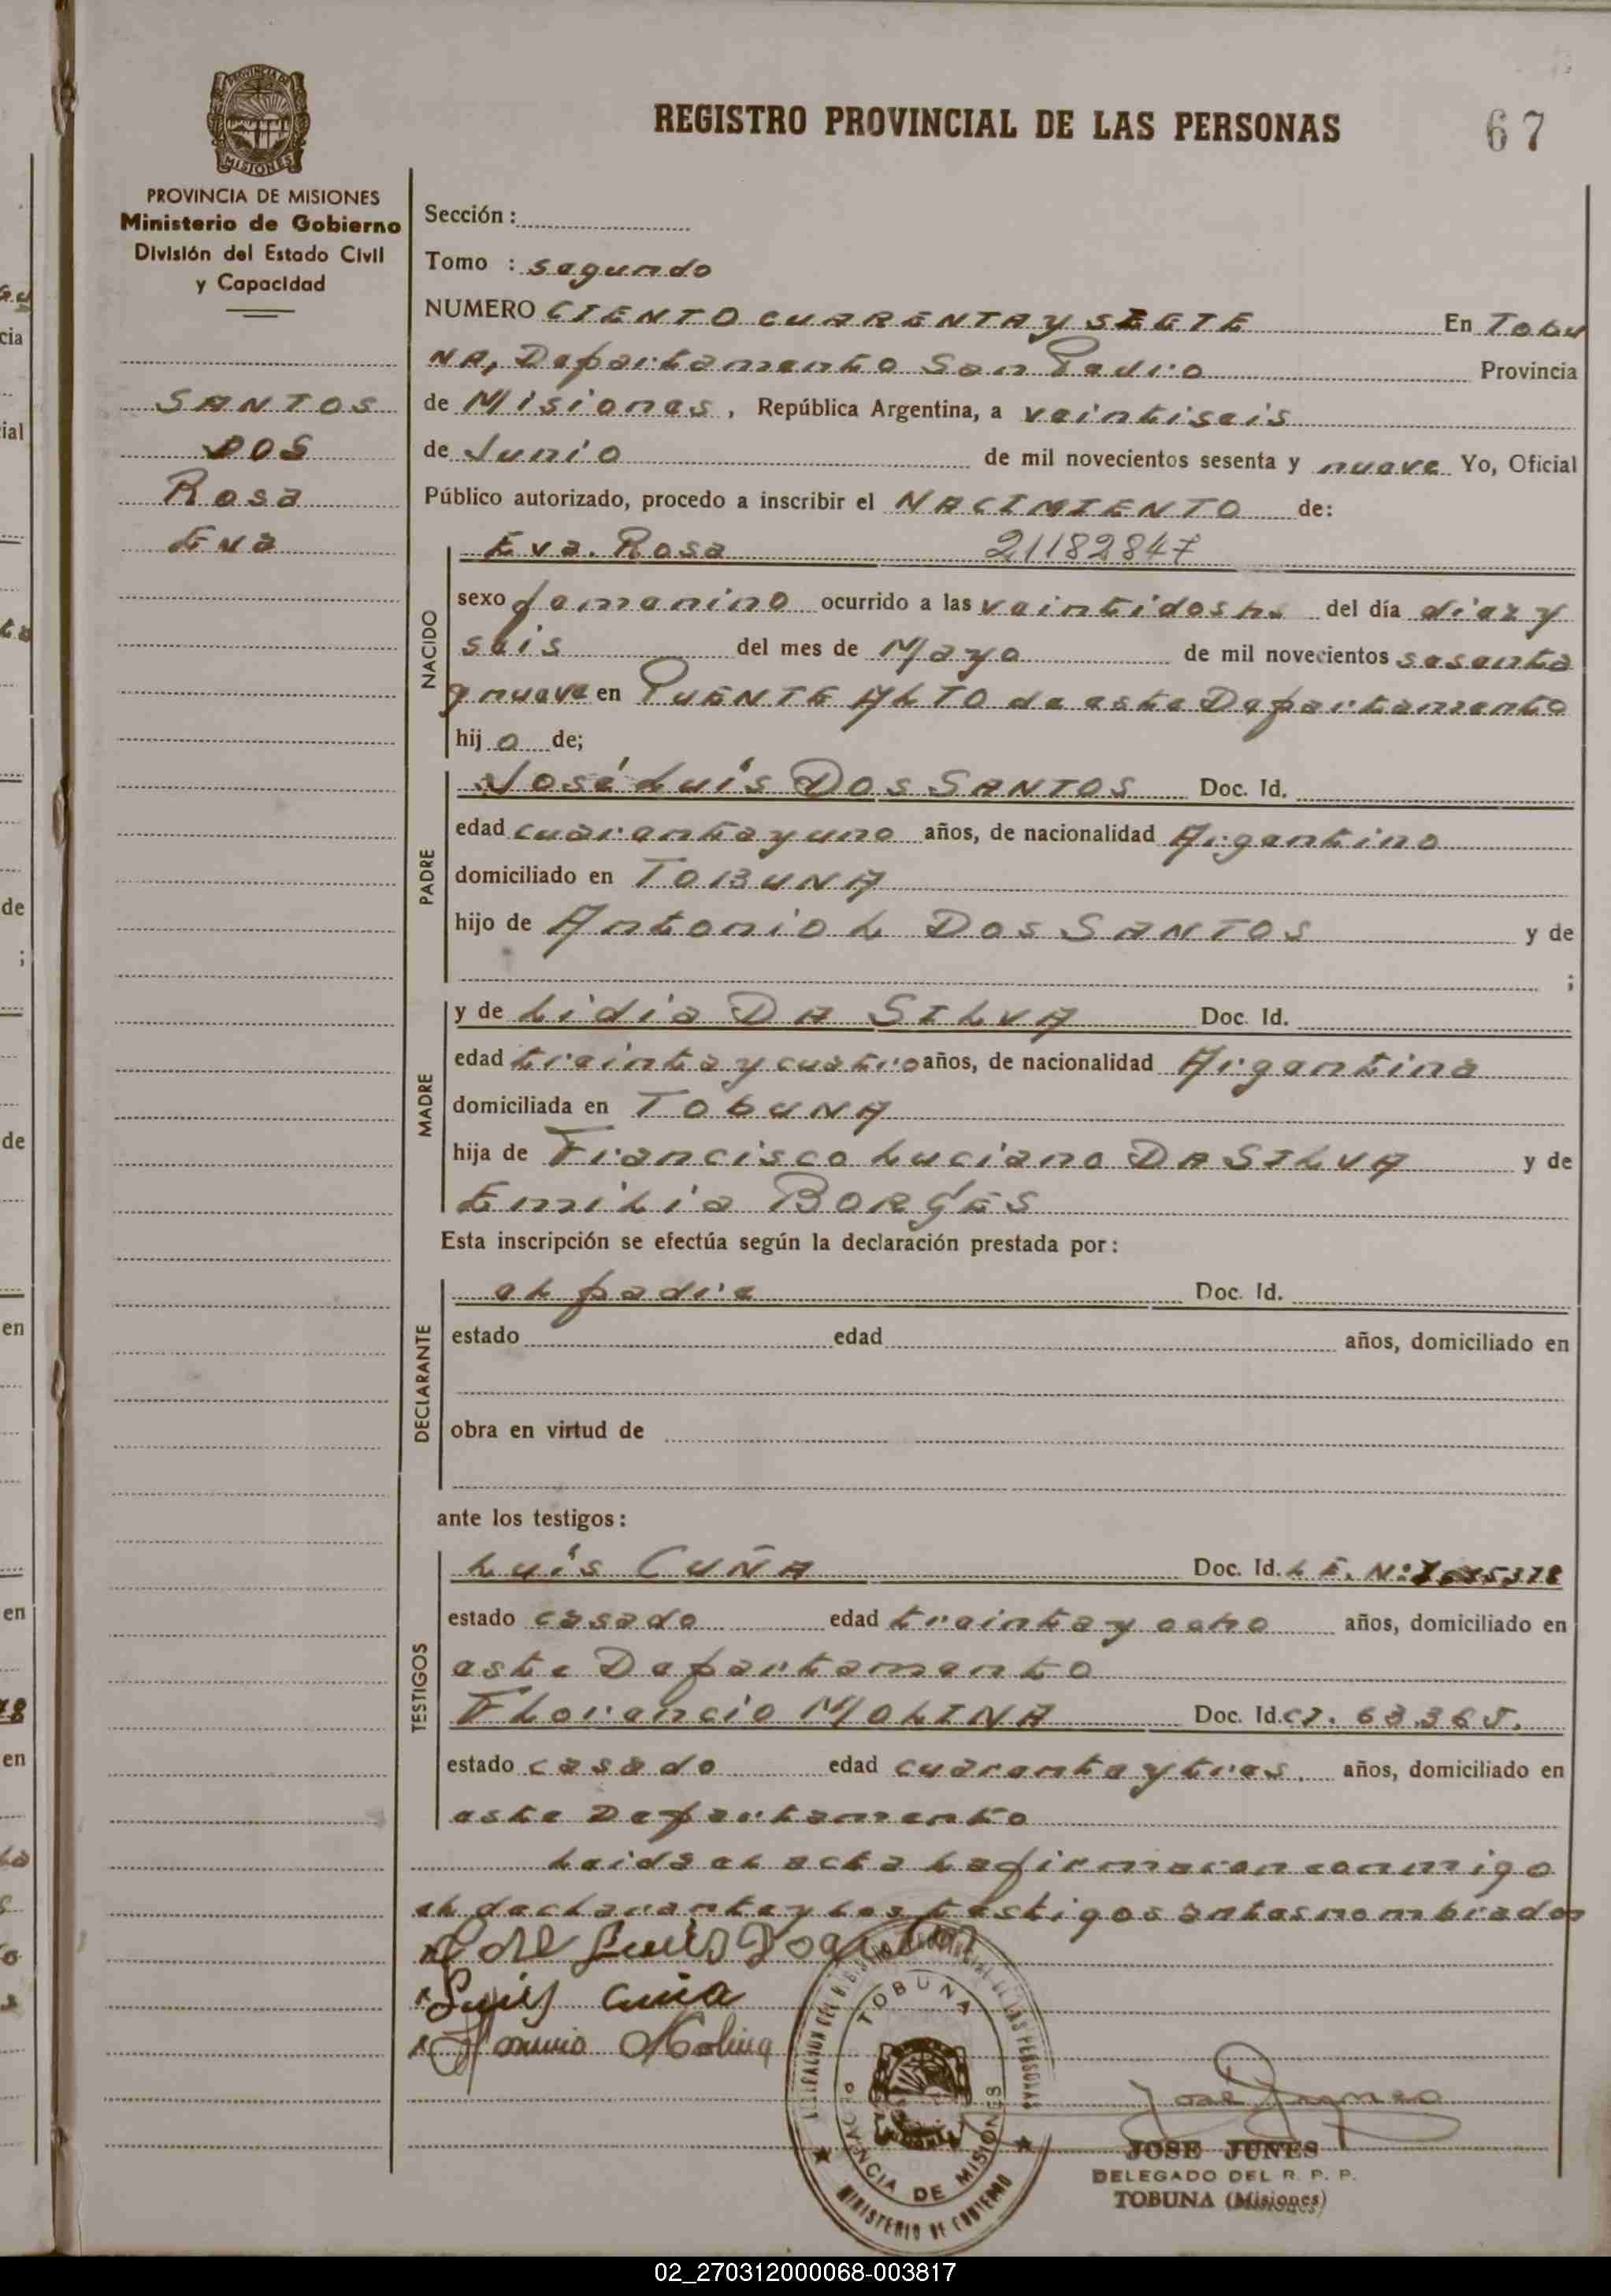 REGISTRO PROVINCIAL DE LAS PERSONAS
67
PROVINCIA DE MISIONES
MISIONES
PROVINCIA DE MISIONES
Ministerio de Gobierno
División del Estado Civil
y Capacidad
SANTOS
DOS
Rosa
Eva
Sección :
Tomo : segundo
NUMERO CIENTO CUARENTA y SIETE En Tobu
NA, Departamento San Pedro Provincia
de Misiones, República Argentina, a veintiseis
de Junio de mil novecientos sesenta y nueve Yo, Oficial
Público autorizado, procedo a inscribir el NACIMIENTO de:
NACIDO
Eva Rosa 21182847
sexo femenino ocurrido a las veintidos hs del día diez y
seis del mes de Mayo de mil novecientos sesenta
y nueve en PUENTE ALTO de este Departamento
hij a de;
PADRE
José Luís DOS SANTOS Doc. Id.
edad cuarenta y uno años, de nacionalidad Argentino
domiciliado en TOBUNA
hijo de Antonio L DOS SANTOS y de
;
MADRE
y de Lidia DA SILVA Doc. Id.
edad treinta y cuatro años, de nacionalidad Argentina
domiciliada en TObUNA
hija de Francisco Luciano DA SILVA y de
Emilia BORGES
Esta inscripción se efectúa según la declaración prestada por :
DECLARANTE
el padre Doc. Id.
estado edad años, domiciliado en
obra en virtud de
ante los testigos :
TESTIGOS
Luís CUÑA Doc. Id. L E. Nº
estado casado edad treinta y ocho años, domiciliado en
este Departamento
Florencio MOLINA Doc. Id. CI. 63.365.
estado casado edad cuarenta y tres. años, domiciliado en
este Departamento
Leida el acta la firmaron conmigo
el declarante y los testigos antes nombrados
Luis
Luis Cuña
Molina
TOBUNA
PROVINCIA DE MISIONES
MINISTERIO DE GOBIERNO
Jose Junes
JOSE JUNES
DELEGADO DEL R. P. P.
TOBUNA (Misiones)
02_270312000068-003817